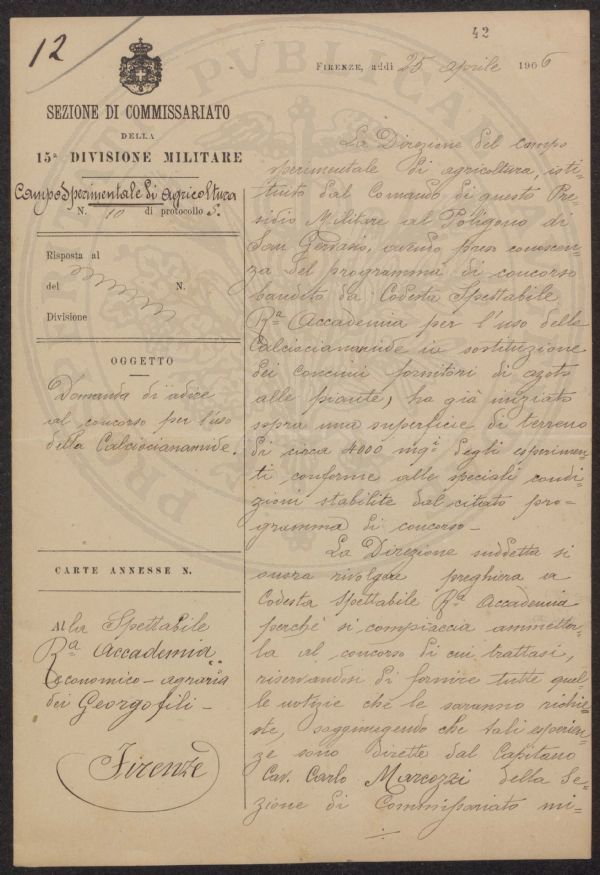 12
42
FIRENZE, addì 25 aprile 1906
SEZIONE DI COMMISSARIATO
DELLA
15ª DIVISIONE MILITARE
Campo Sperimentale di Agricoltura
N. 10 di protocollo S.
Risposta al
del N.
Divisione
OGGETTO
Domanda di adire
al concorso per l'uso
della Calciocianamide.
CARTE ANNESSE N.
Alla Spettabile
Rª Accademia
Economico-agraria
dei Georgofili -
Firenze
La Direzione del campo
sperimentale di agricoltura, isti=
tuito dal Comando di questo Pre=
sidio Militare al Poligono di
San Gervasio, avendo preso conoscen=
za del programma di concorso
bandito da Codesta Spettabile
Rª Accademia per l'uso della
Calciocianamide in sostituzione
dei concimi fornitori di azoto
alle piante, ha già iniziato
sopra una superficie di terreno
di circa 4000 mqⁱ degli esperimen=
ti conforme alle speciali condi=
zioni stabilite dal citato pro=
gramma di concorso -
La Direzione suddetta si
onora rivolgere preghiera a
Codesta Spettabile Rª Accademia
perchè si compiaccia ammetter=
la al concorso di cui trattasi,
riservandosi di fornire tutte quel=
le notizie che le saranno richie=
ste, soggiungendo che tali esperien=
ze sono dirette dal Capitano
Cav. Carlo Marcozzi della Se=
zione di Commissariato mi=
PVBLICAM